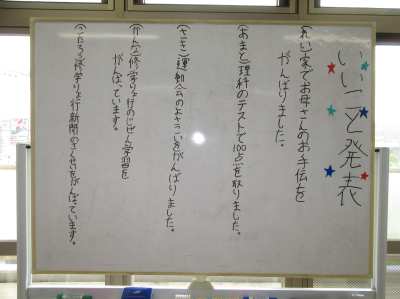 いいこと発表
(れい)家でお母さんのお手伝を
がんばりました。
(あまと)理科のテストで100点を取りました。
(さき)運動会のよさこいをがんばりました。
修学りょ行のじぜん学習を
がんばっています。
修学りょ行新聞のさくせいをがんばっています。